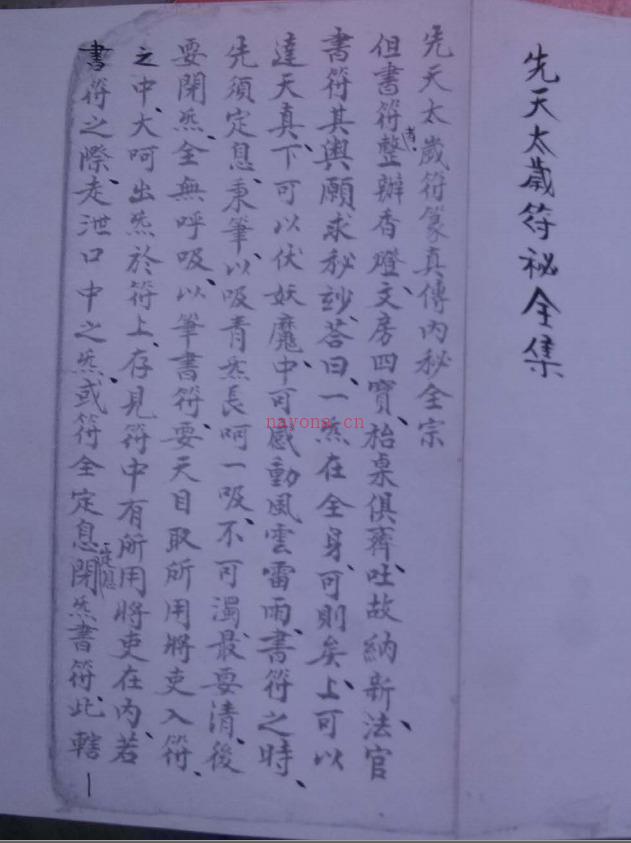 先天太歲符祕全集
先天太歲符篆真傳內秘全宗
但書符者整辦香燈、文房四寶、抬桌俱齊、吐故納新、法官
書符其輿願求秘玅、答曰、一炁在全身、可則矣、上可以
達天真、下可以伏妖魔、中可感動風雲雷雨、書符之時、
先須定息、秉筆、以吸青炁長呵一吸、不可濁、最要清、後
要閉炁、全無呼吸、以筆書符、要天目取所用將吏入符、
之中、大呵出炁於符上、存見符中有所用將吏在內、若
書符之際、走泄口中之炁、或符全定息一定息閉炁書符、此、轄
nayona.cn